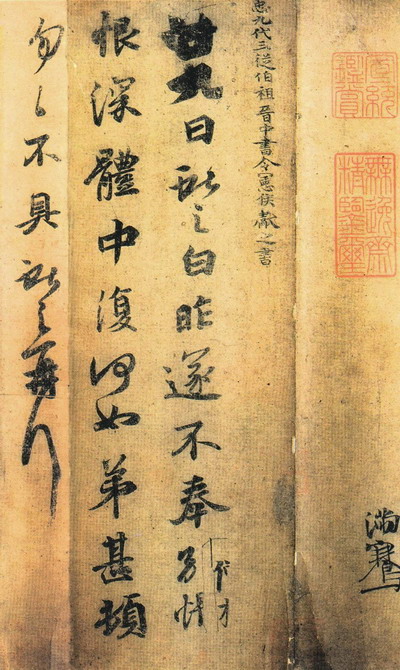 宣統鑑賞
無逸齋精鑑璽
滿騫
九代三從伯祖晉中書令憲侯獻之書
廿九日獻之白昨遂不奉別悵
恨深體中復何如弟甚頓
勿々不具獻之再拜